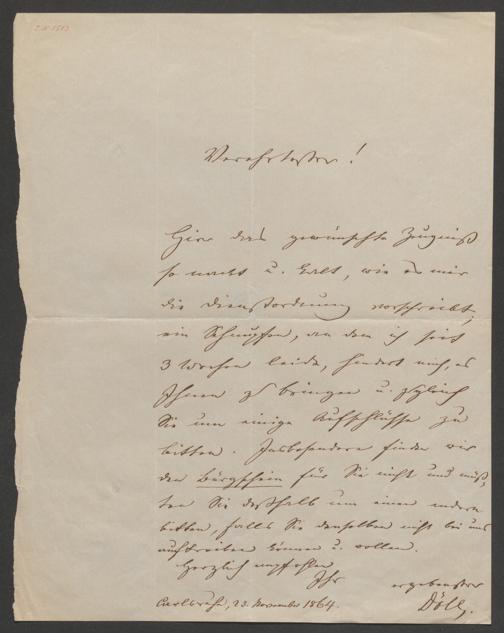 Verehrtester!
Hier das gewünschte Zeugniß
so nackt u. kalt, wie es mir
die Dienstordnung vorschreibt;
ein Schnupfen, an dem ich seit
3 Wochen leide, hindert mich, es
Ihnen zu bringen u. zugleich
Sie um einige Aufschlüsse zu
bitten. Insbesondere finden wir
den Bürgschein für Sie nicht und müß-
ten Sie deßhalb um einen andern
bitten, falls Sie denselben nicht bei uns
auftreiben können u. wollen.
Herzlich empfohlen
Ihr ergebenster
Carlsruhe, 23. November 1864. Döll.